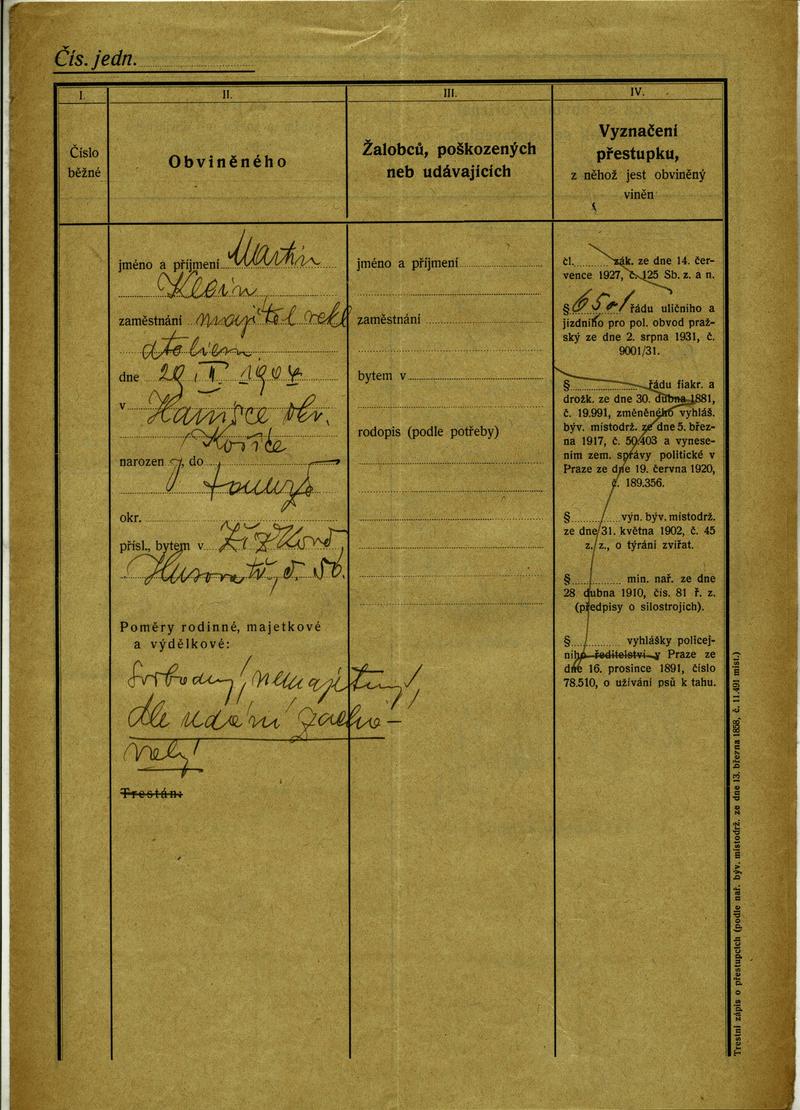 Čís. jedn.
I.
Číslo
běžné
II.
Obviněného
III.
Žalobců, poškozených
neb udávajících
IV.
Vyznačení
přestupku,
z něhož jest obviněný
viněn
jméno a příjmení Martin
Klein
zaměstnání majitel rekl
atelieru
dne 29 I. 1904
v
okr.
narozen , do
okr.
přísl., bytem v Žižkově,
Husova tř. č. 56.
Poměry rodinné, majetkové
a výdělkové:
Svobodný, nemajetný,
dle udání zacho-
valý!
Trestán:
jméno a příjmení
zaměstnání
bytem v
rodopis (podle potřeby)
čl. zák. ze dne 14. čer-
vence 1927, č. 125 Sb. z. a n.
§ řádu uličního a
jízdního pro pol. obvod praž-
ský ze dne 2. srpna 1931, č.
9001/31.
§ řádu fiakr. a
drožk. ze dne 30. dubna 1881,
č. 19.991, změněného vyhláš.
býv. místodrž. ze dne 5. břez-
na 1917, č. 50/403 a vynese-
ním zem. správy politické v
Praze ze dne 19. června 1920,
č. 189.356.
§ výn. býv. místodrž.
ze dne 31. května 1902, č. 45
z. z., o týrání zvířat.
§ min. nař. ze dne
28 dubna 1910, čís. 81 ř. z.
(předpisy o silostrojích).
§ vyhlášky policej-
ního ředitelství v Praze ze
dne 16. prosince 1891, číslo
78.510, o užívání psů k tahu.
Trestní zápis o přestupcích (podle nař. býv. místodrž. ze dne 13. března 1858, č. 11.491 míst.)